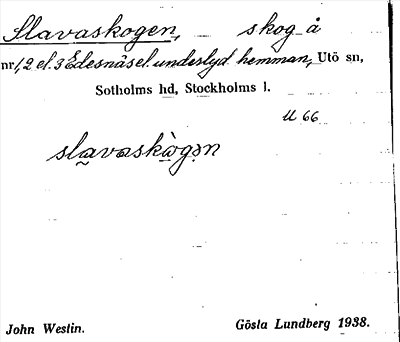 Slavaskogen, skog å
nr 1, 2 el. 3 Edesnäs el. underlyd. hemman, Utö sn,
Sotholms hd, Stockholms l.
U 66
slavaskògən
John Westin. Gösta Lundberg 1938.